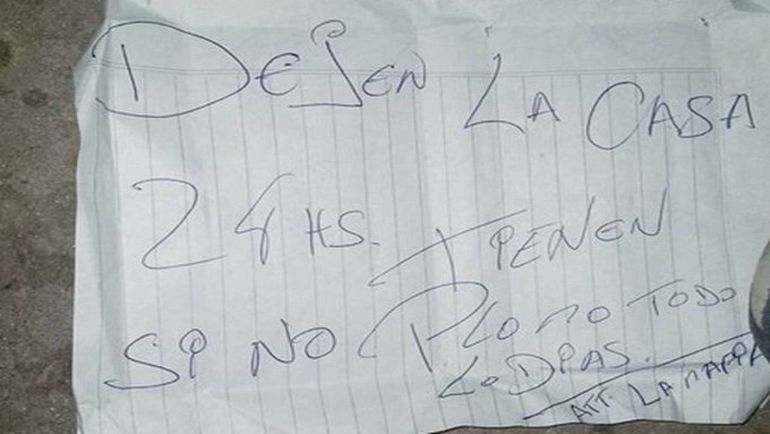 DEJEN LA CASA
24 HS. TIENEN
SI NO PLOMO TODO
LO DIAS.
ATT. LA MAFIA